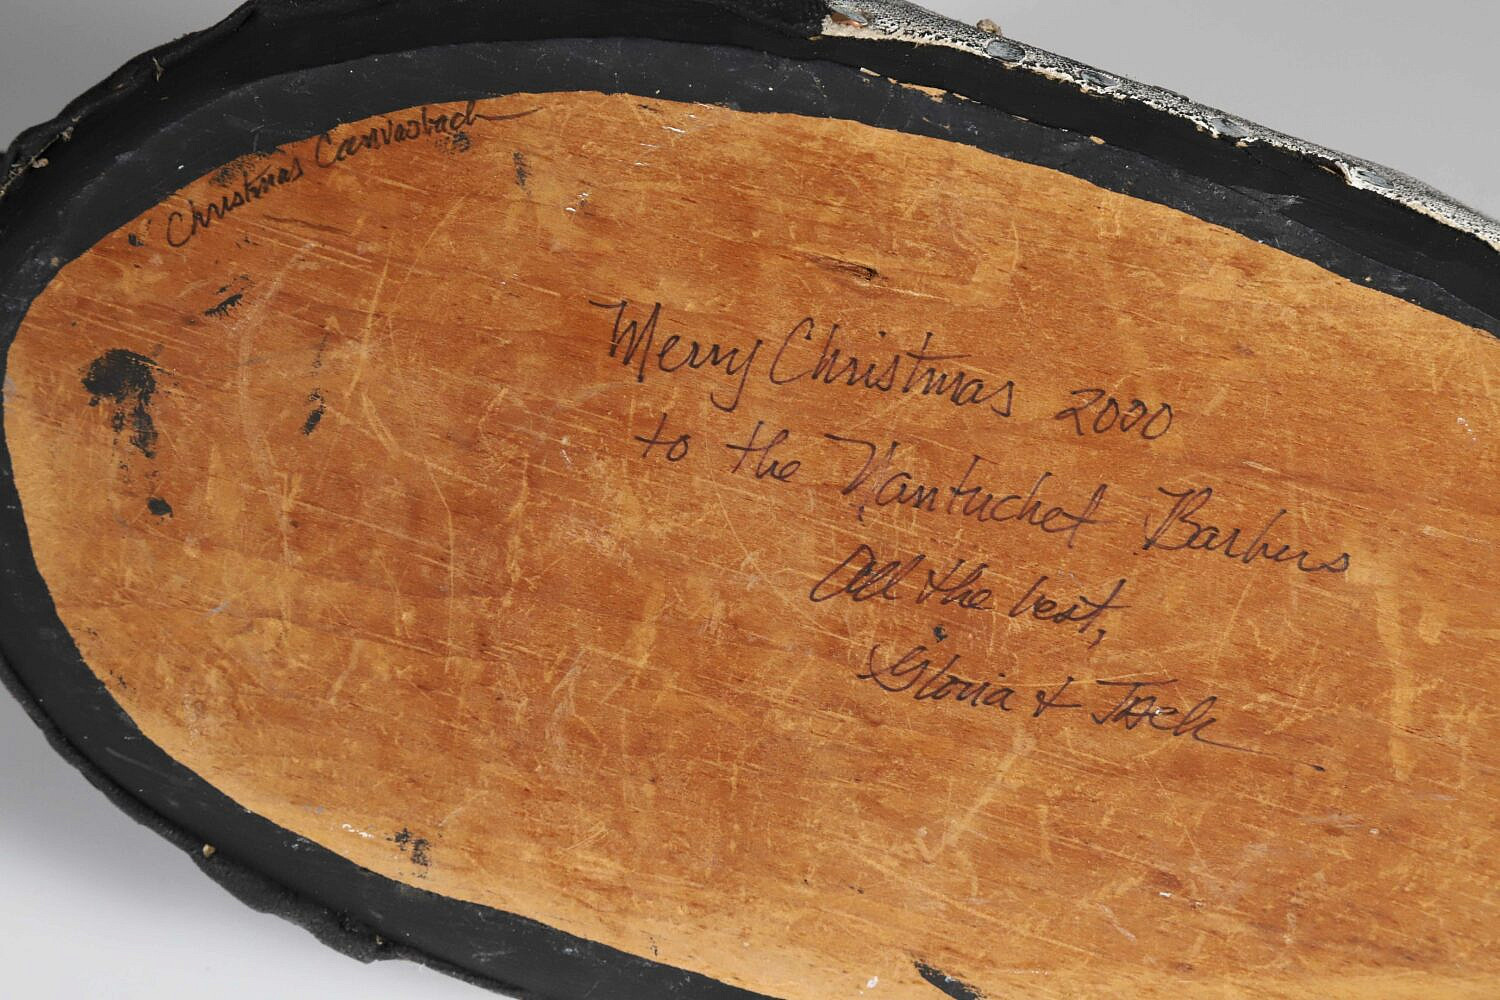 Christmas Canvasback
Merry Christmas 2000
to the Nantucket Barbers
All the best,
Gloria + Jack